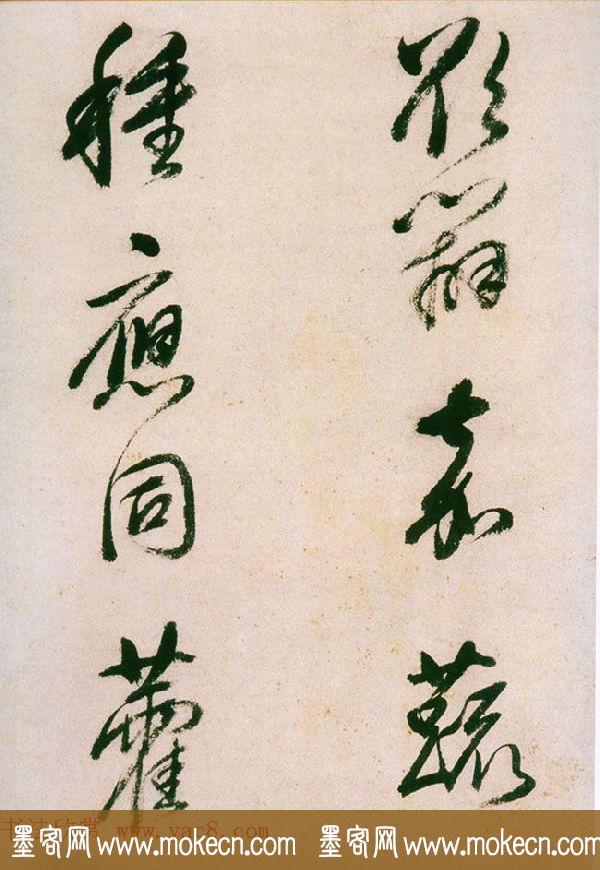 欲嘉蔬
種應同藿
书法欣赏 www.yac8.com
墨客网 www.mokecn.com 墨客网 www.mokecn.com